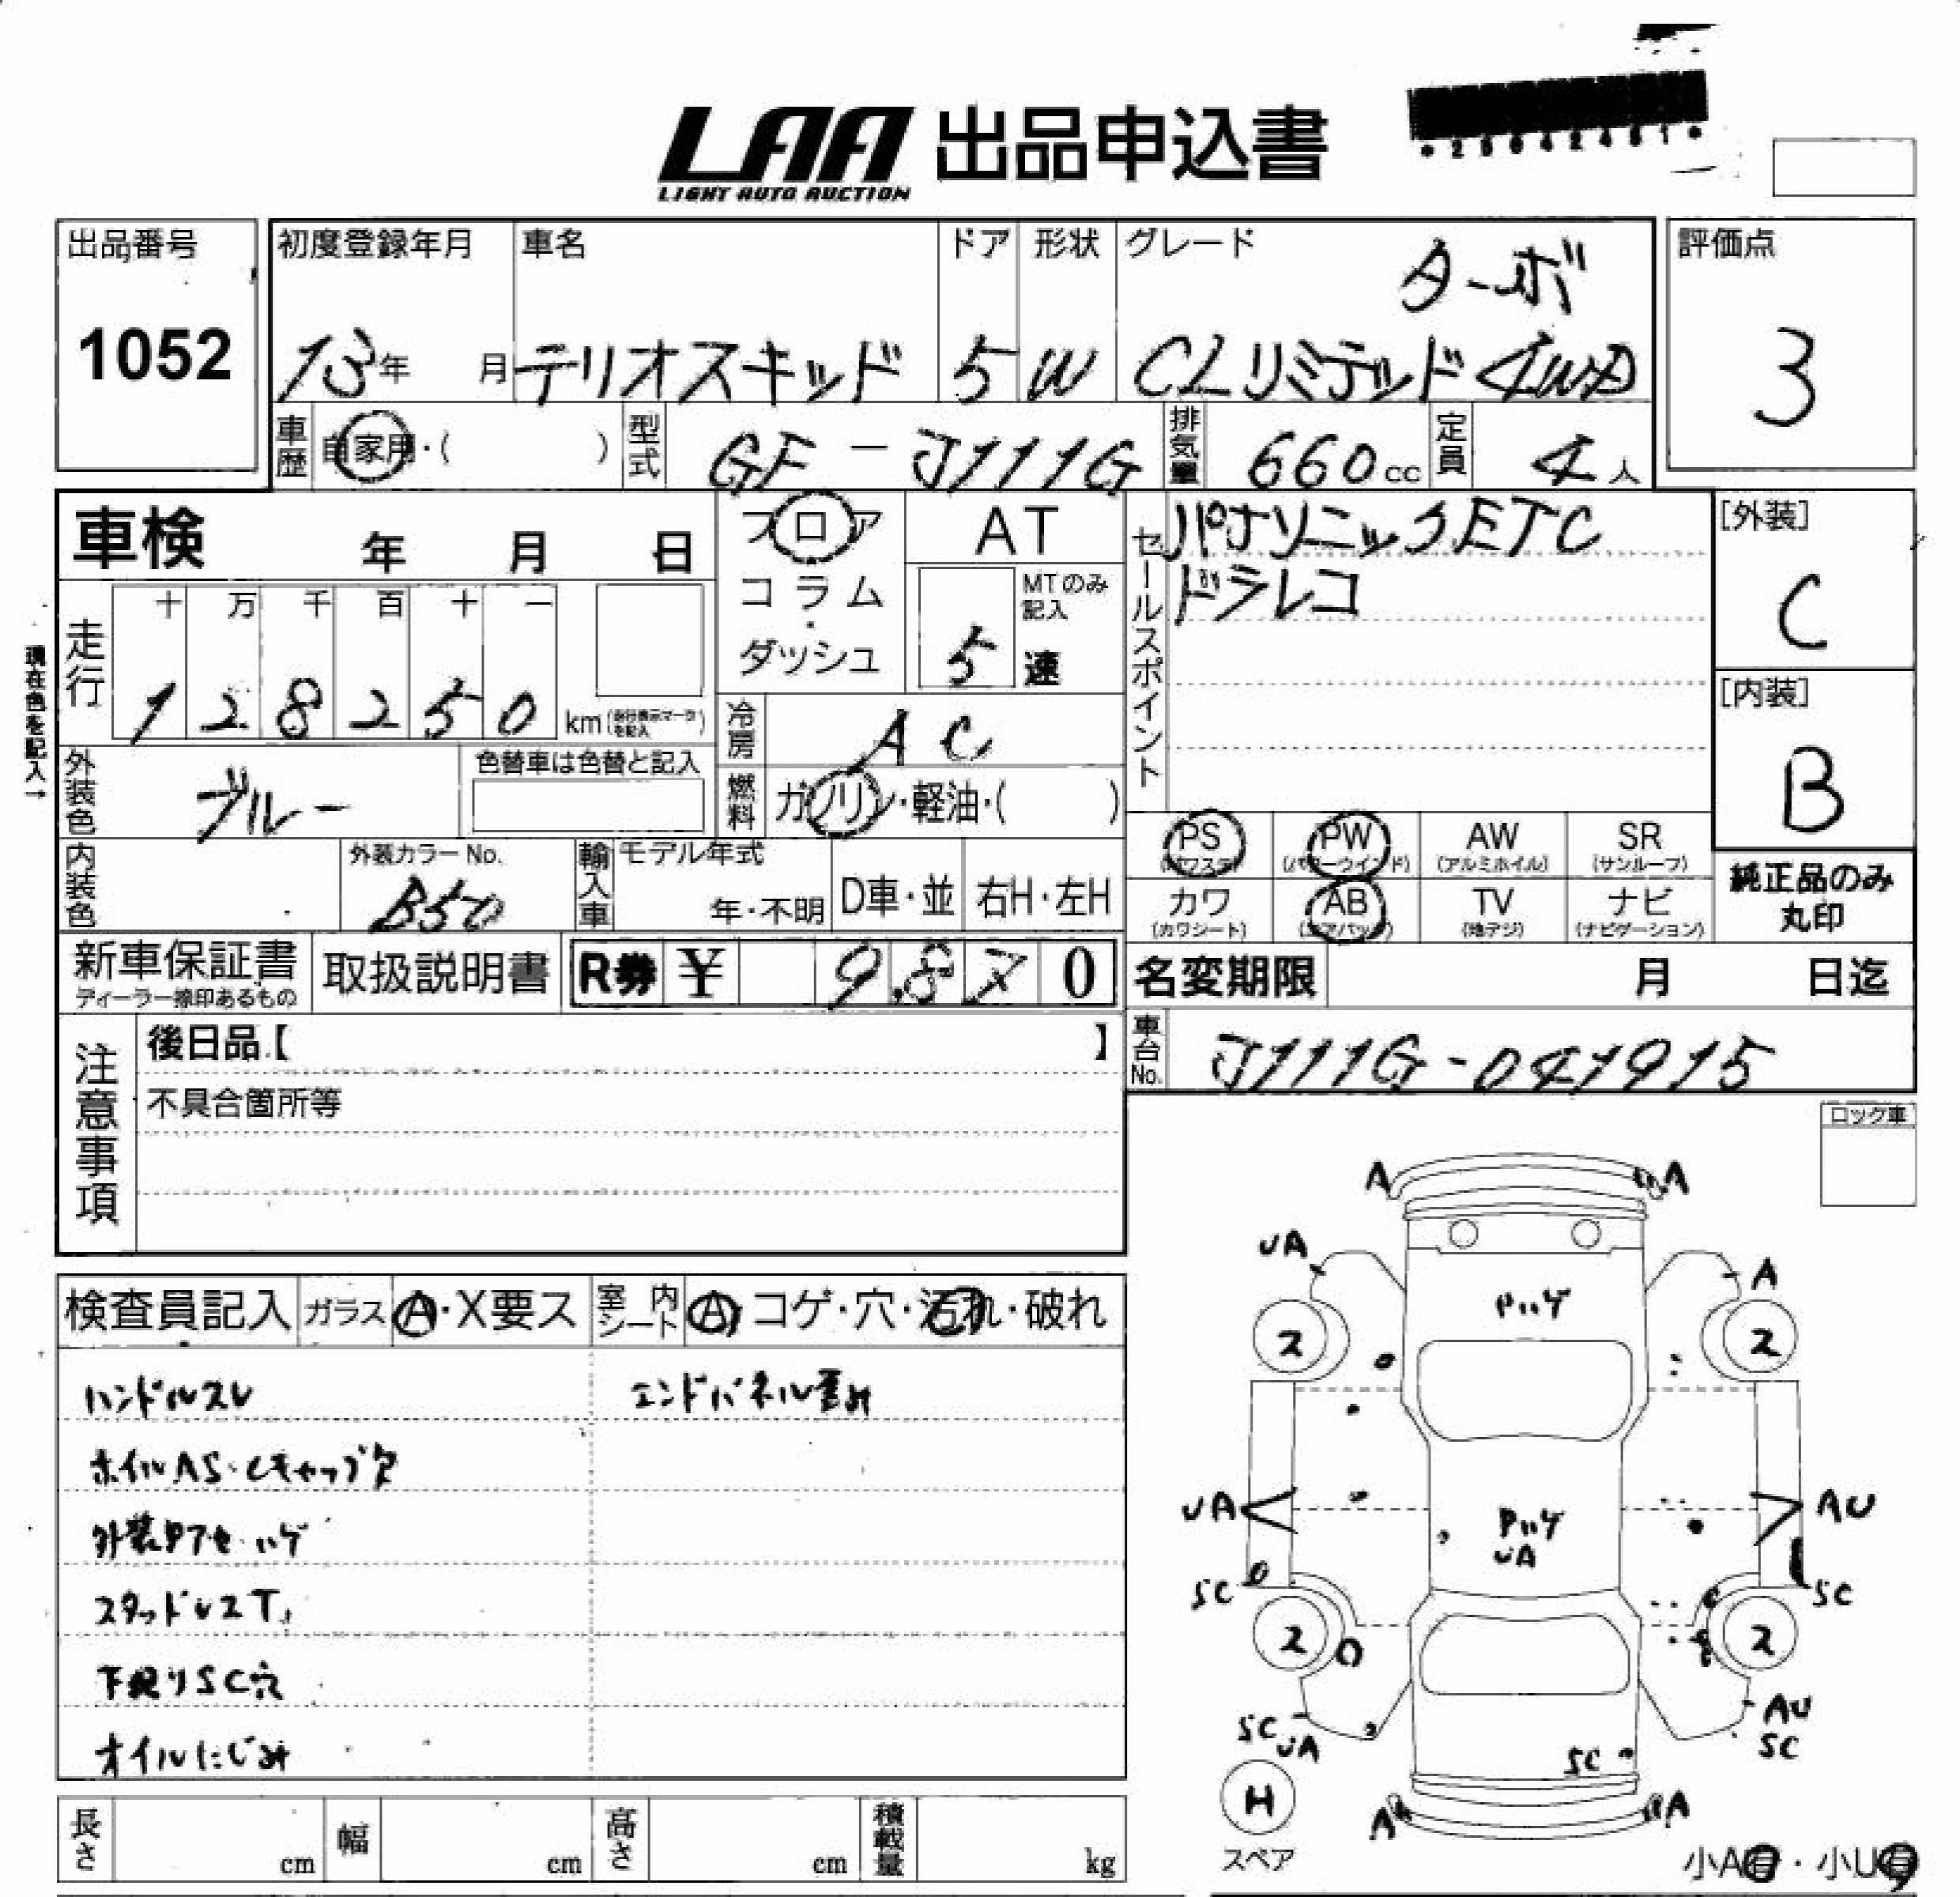 LAA 出品申込書
LIGHT AUTO AUCTION
出品番号
1052
初度登録年月
13年 月
車名
テリオスキッド
ドア
5
形状
W
グレード
ターボ
CLリミテッド4WD
評価点
3
車歴
自家用・( )
型式
GF-J111G
排気量
660cc
定員
4人
車検 年 月 日
フロア
コラム
・
ダッシュ
AT
5
MTのみ
記入
速
セールスポイント
パナソニックETC
ドラレコ
[外装]
C
[内装]
B
現在色を記入→
走行
十 万 千 百 十 一
1 2 8 2 5 0
km
冷房
AC
外装色
ブルー
色替車は色替と記入
燃料
ガソリン・軽油・( )
内装色
外装カラーNo.
B50
輸入車
モデル年式
年・不明
D車・並
右H・左H
PS
(パワステ)
PW
(パワーウインド)
AW
(アルミホイル)
SR
(サンルーフ)
カワ
(カワシート)
AB
(エアバッグ)
TV
(地デジ)
ナビ
(ナビゲーション)
純正品のみ
丸印
新車保証書
ディーラー捺印あるもの
取扱説明書
R券 ¥ 9,870
名変期限 月 日迄
注意事項
後日品【 】
不具合箇所等
車台No.
J111G-041915
ロック車
検査員記入
ガラス
A・X要ス
室内シート
A・コゲ・穴・汚れ・破れ
ハンドルスレ
エンドパネル歪み
ホイルAS・Cキャップ欠
外装色アセ・ハゲ
スタッドレスT
下廻りSC穴
オイルにじみ
A A
UA A
Pハゲ
2 2
UA AU
Pハゲ
UA
SC SC
2 2
SC
UA
AU
SC
SC
H
スペア
A A
小A有・小U有
長さ cm
幅 cm
高さ cm
積載量 kg